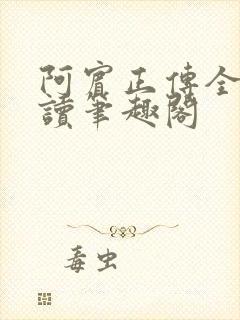 阿賓正傳全
讀筆趣閣
毒虫